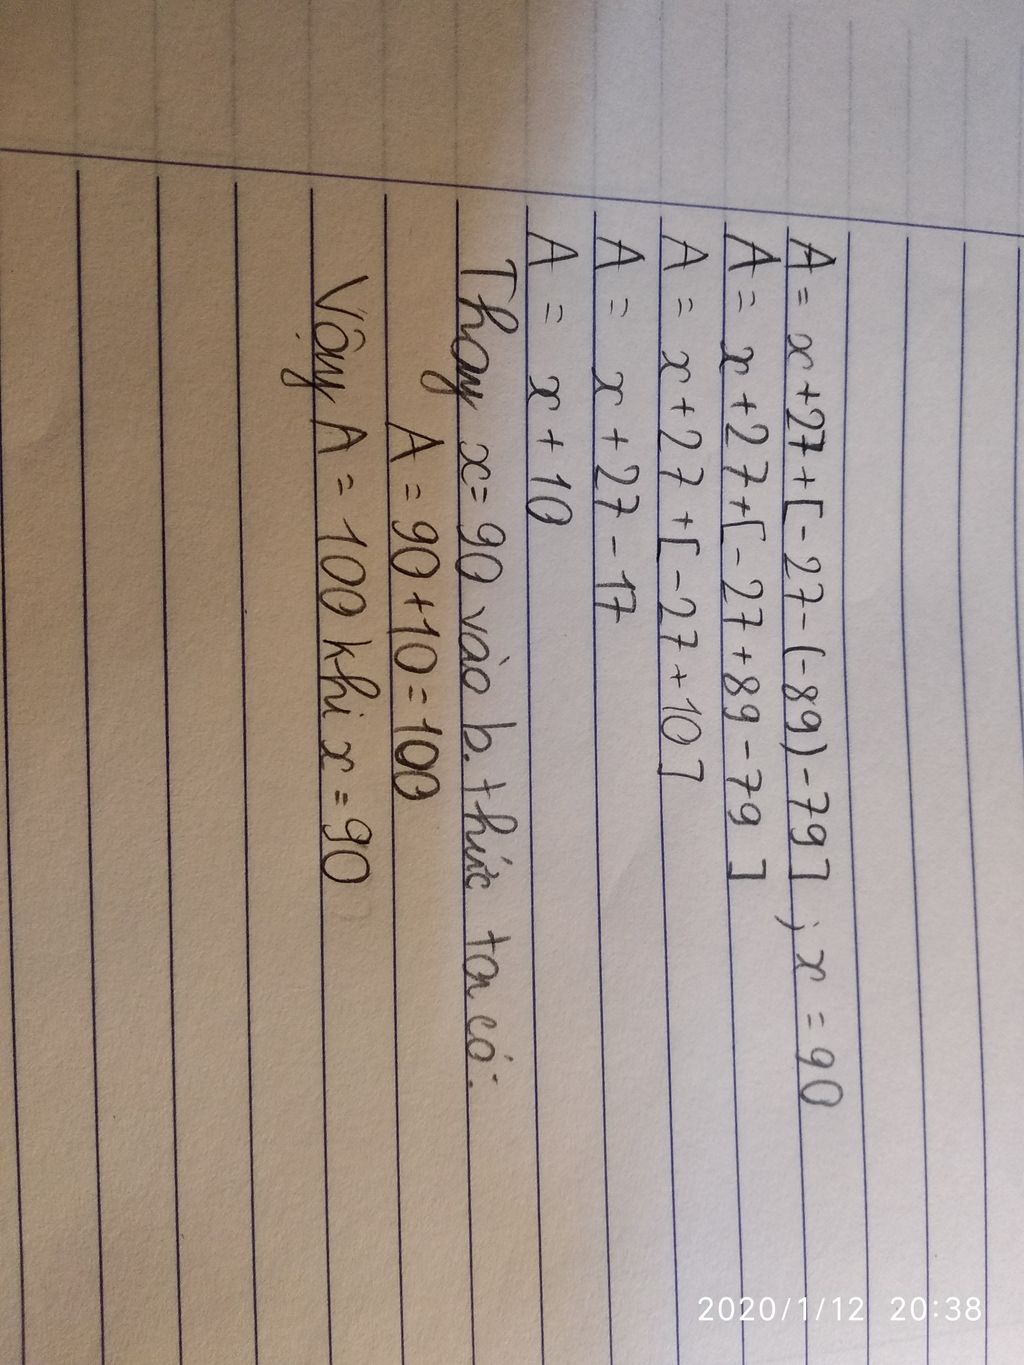 A = x+27+[-27-(-89)-79] ; x = 90
A = x+27+[-27+89-79]
A = x+27+[-27+10]
A = x+27-17
A = x+10
Thay x=90 vào b.thức ta có:
A = 90+10=100
Vậy A = 100 khi x = 90
2020/1/12 20:38